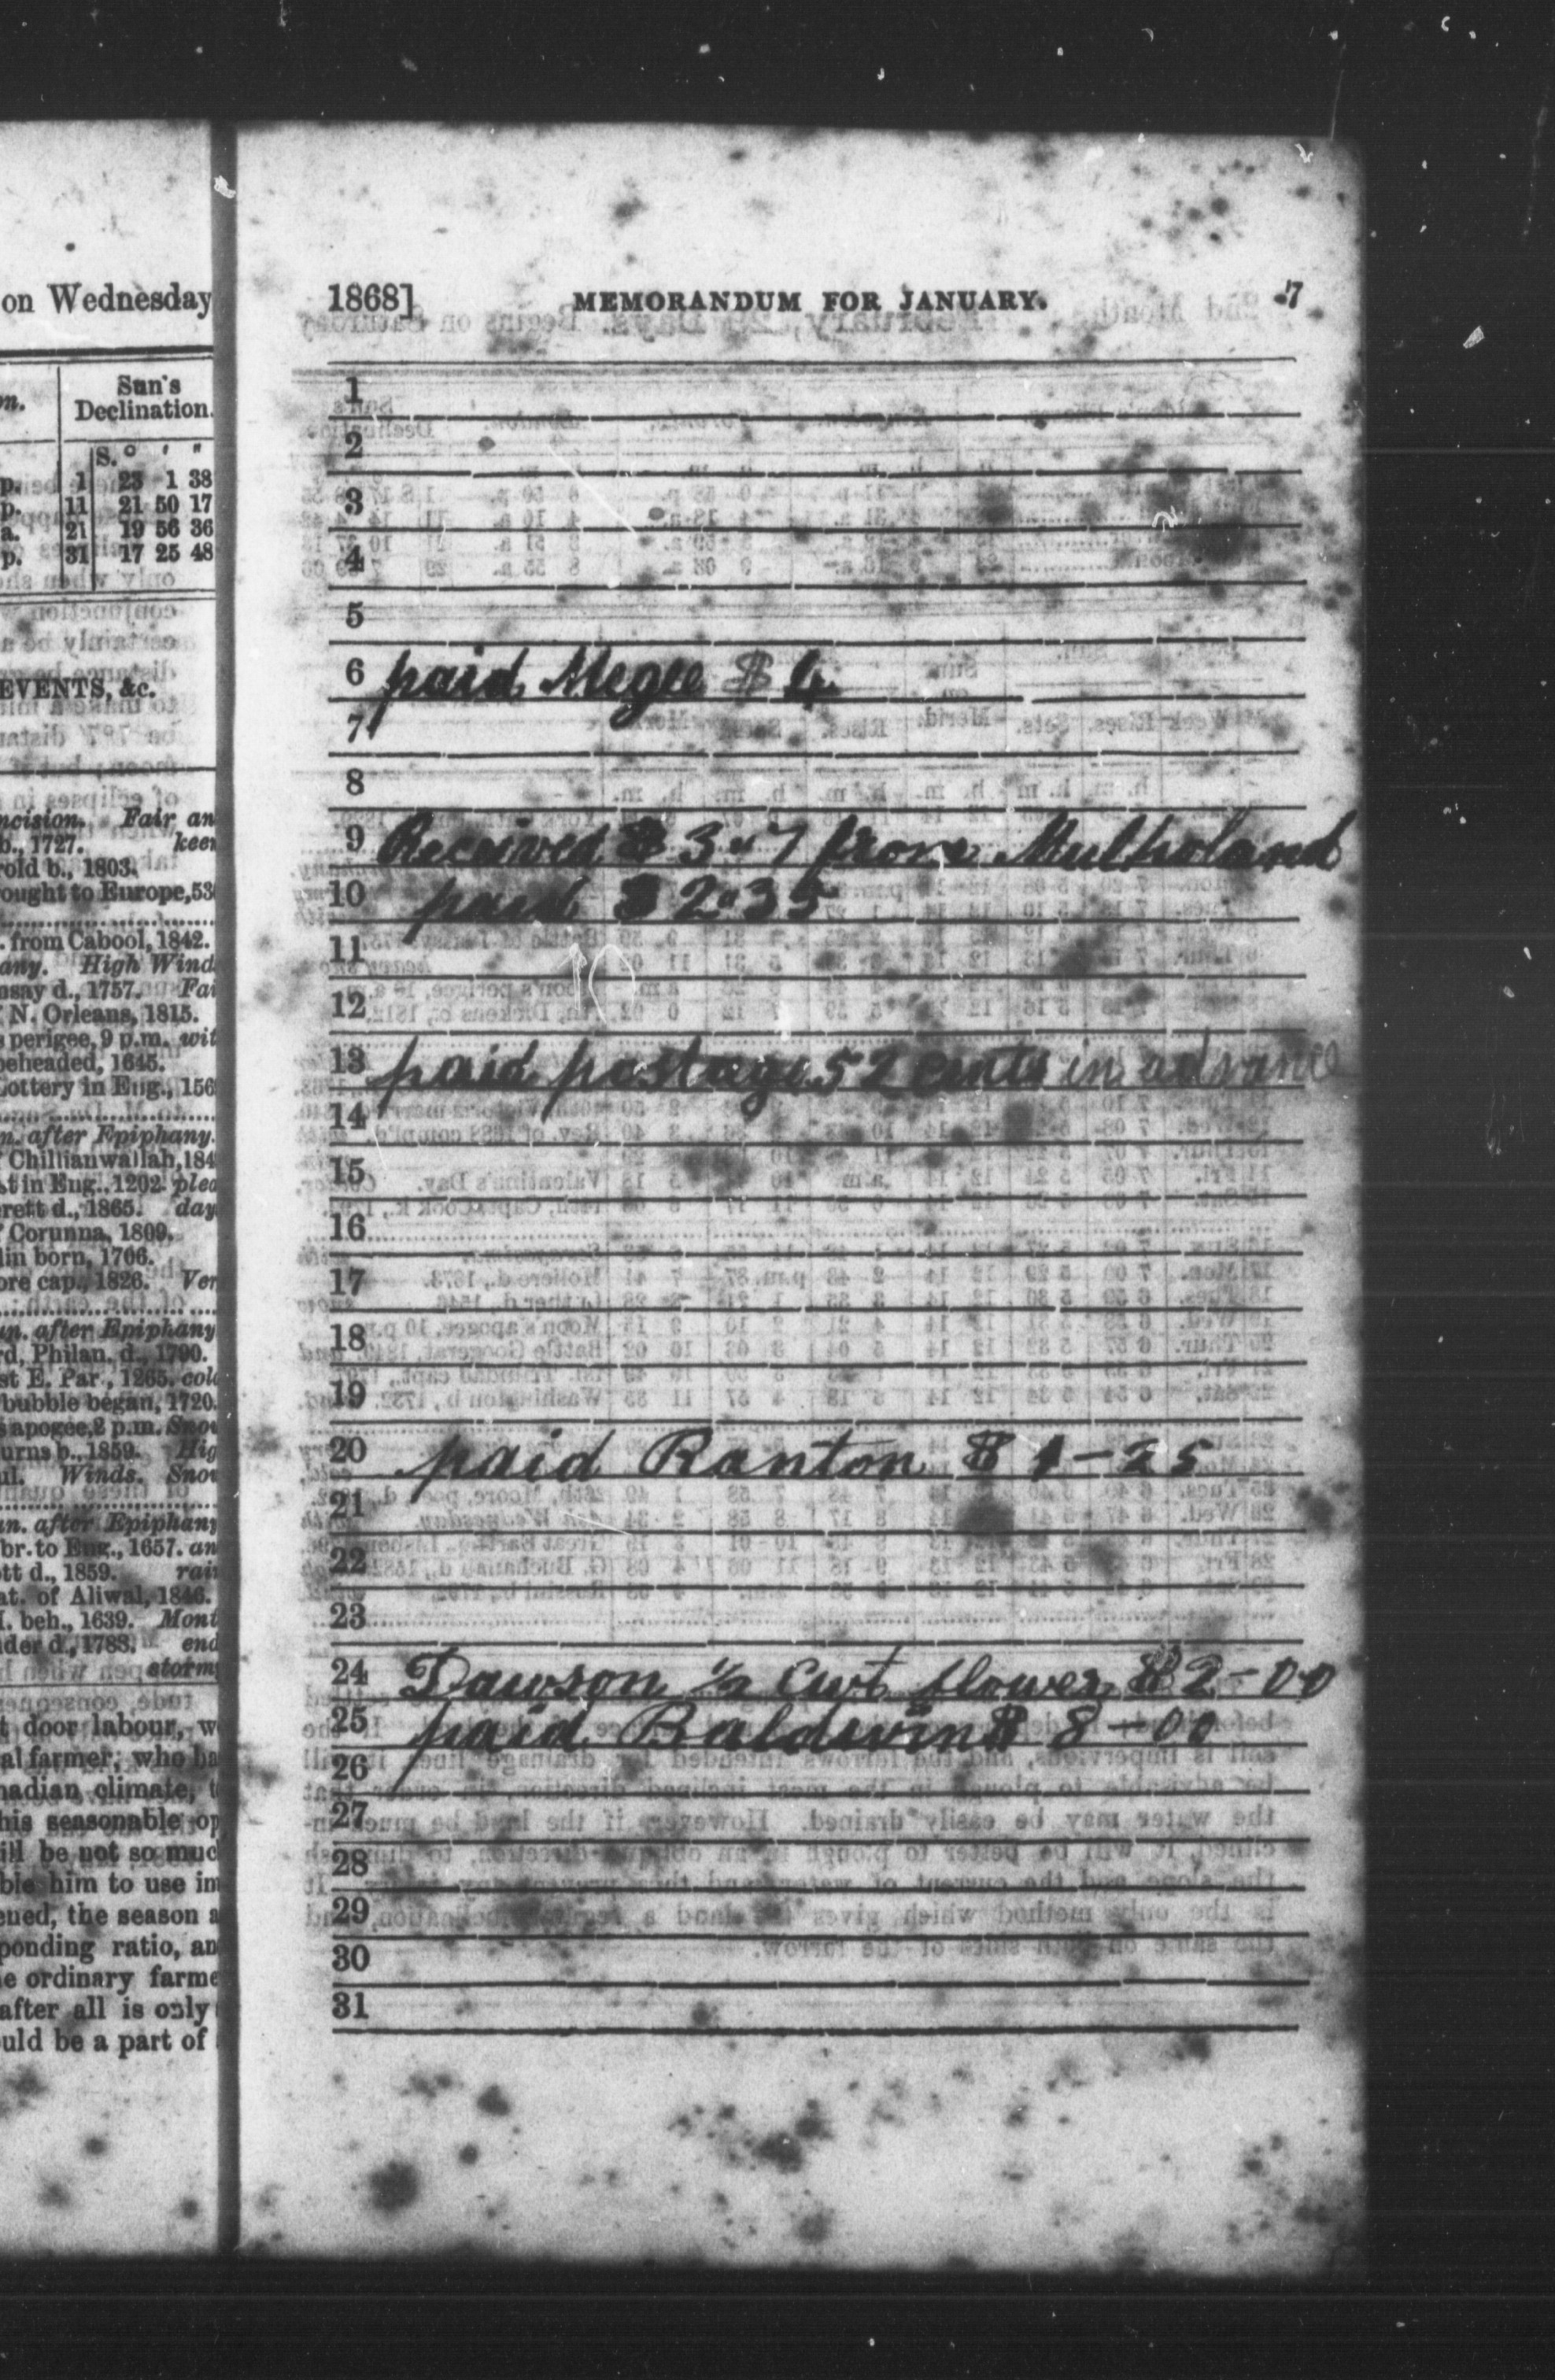 on Wednesday
Sun's
Declination.
S. ° ' "
p. 1 23 1 38
p. 11 21 50 17
a. 21 19 56 36
p. 31 17 25 48
EVENTS, &c.
ncision. Fair an
b., 1727. keen
rold b., 1803.
ought to Europe, 53
. from Cabool, 1842.
any. High Wind
msay d., 1757. Fai
N. Orleans, 1815.
s perigee, 9 p.m. wit
beheaded, 1645.
Lottery in Eng., 156
n. after Epiphany.
Chillianwallah, 184
st in Eng., 1202. plea
erett d., 1865. day
Corunna, 1809.
lin born, 1706.
ore cap., 1826. Ver
un. after Epiphany
rd, Philan. d., 1790.
st E. Par., 1265. col
bubble began, 1720.
s apogee, 2 p.m. Snow
urns b., 1859. Hig
ul. Winds. Snow
un. after Epiphany
br. to Eng., 1657. an
ott d., 1859. rain
at. of Aliwal, 1846.
I. beh., 1639. Mont
der d., 1788. end
stormy
t door labour, w
al farmer, who ha
nadian climate, t
his seasonable op
ill be not so muc
ble him to use im
ened, the season a
ponding ratio, an
e ordinary farme
after all is only
uld be a part of
1868] MEMORANDUM FOR JANUARY. 7
1
2
3
4
5
6 paid Megee $ 4
7
8
9 Received $ 3"7 from Mulholand
10 paid $ 2"35
11
12
13 paid postage 52 cents in advance
14
15
16
17
18
19
20 paid Ranton $ 1-25
21
22
23
24 Dawson ½ Cwt flower $ 2-00
25 paid Baldwin $ 8-00
26
27
28
29
30
31